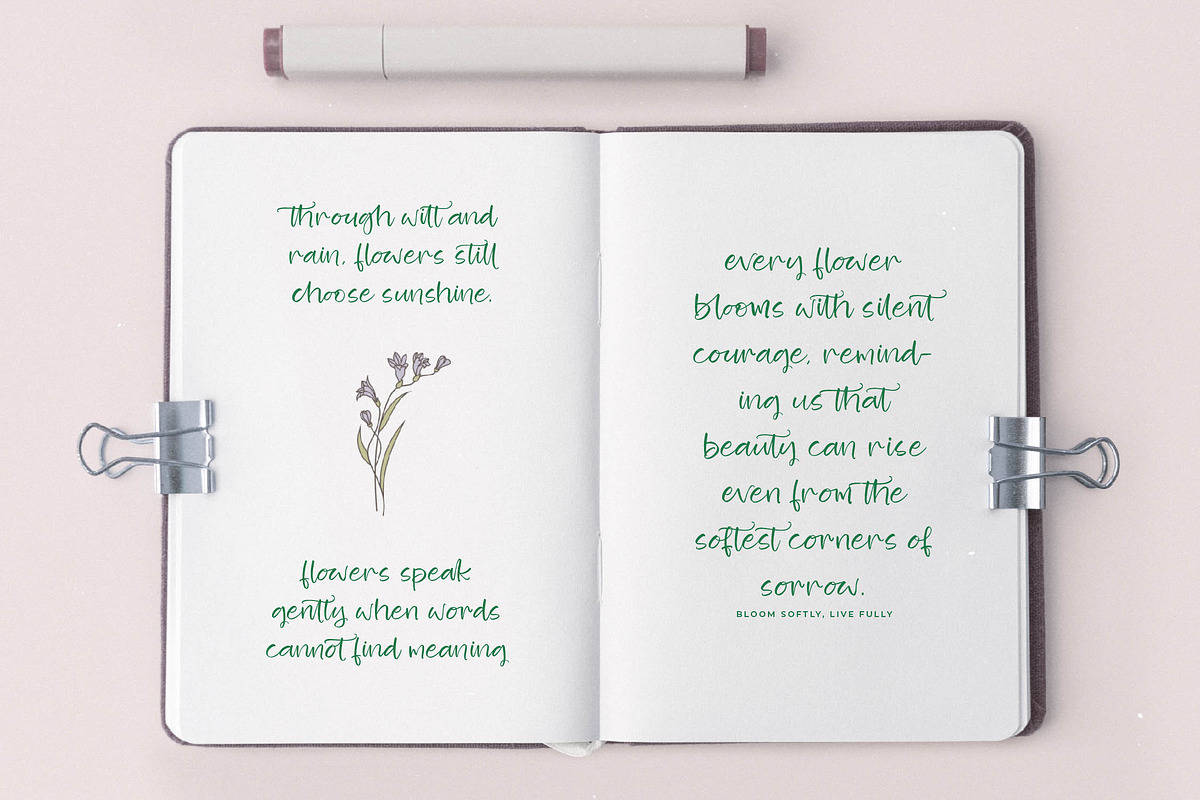 through wilt and
rain, flowers still
choose sunshine.
flowers speak
gently when words
cannot find meaning
every flower
blooms with silent
courage, remind-
ing us that
beauty can rise
even from the
softest corners of
sorrow.
BLOOM SOFTLY, LIVE FULLY